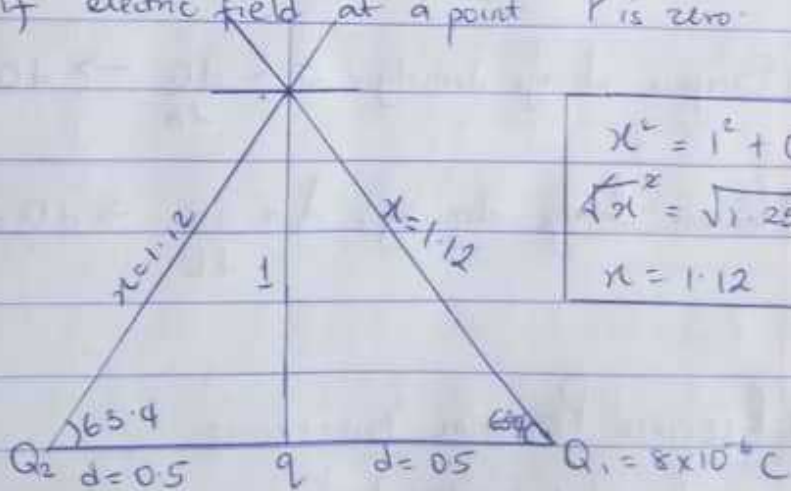 if electric field at a point P is zero.
x² = 1² + (
√x² = √1.25
x = 1.12
x = 1.12
x = 1.12
1
63.4
Q₂ d = 0.5 q d = 05 Q₁ = 8×10⁻⁶ C